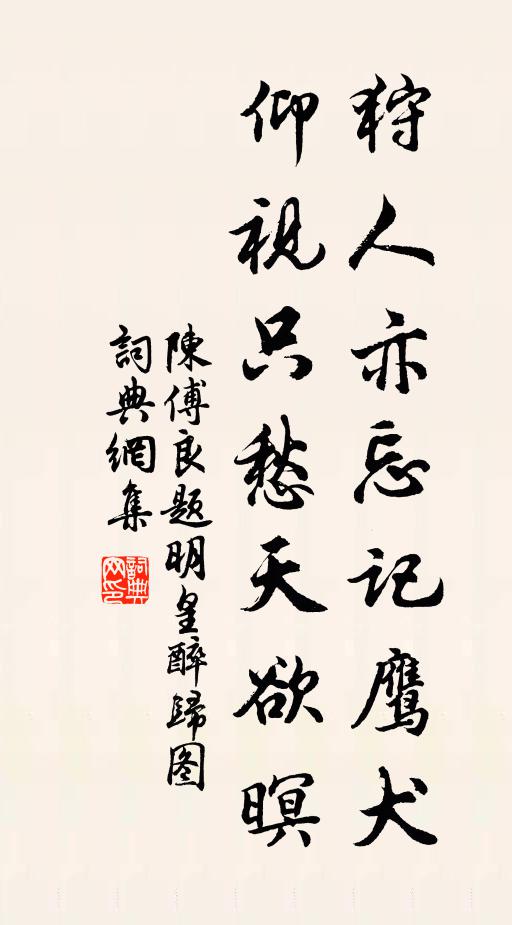 狩人亦忘记鹰犬
仰視只愁天欲暝
陳傅良题明皇醉歸图
詞典網集
詞典网印